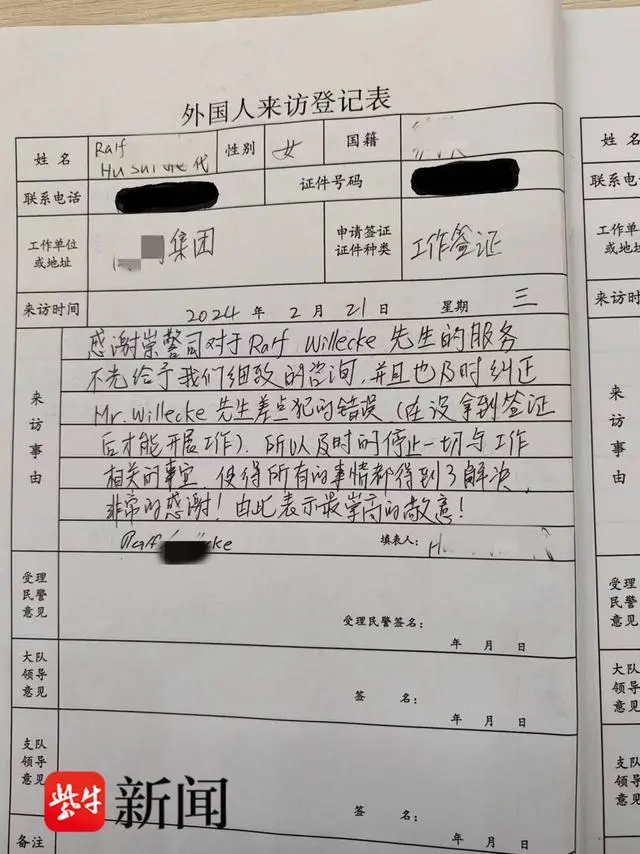 外国人来访登记表
姓名 Ralf 代 性别 女 国籍
联系电话 证件号码
工作单位或地址 集团 申请签证证件种类 工作签证
来访时间 2024 年 2 月 21 日 星期 三
来访事由
感谢崇警司对于Ralf Willecke 先生的服务
不光给予我们细致的咨询,并且也及时纠正
Mr. Willecke 先生差点犯的错误(在没拿到签证
后才能开展工作).所以及时的停止一切与工作
相关的事宜.使得所有的事情都得到了解决,
非常的感谢!由此表示最崇高的敬意!
Ralf cke 填表人: H
受理民警意见
受理民警签名:
年 月 日
大队领导意见
签 名:
年 月 日
支队领导意见
签 名:
年 月 日
备注
联系电话
工作单
或地址
来访时间
来访事由
受理
民警
意见
大队
领导
意见
支队
领导
意见
备注
紫牛 新闻